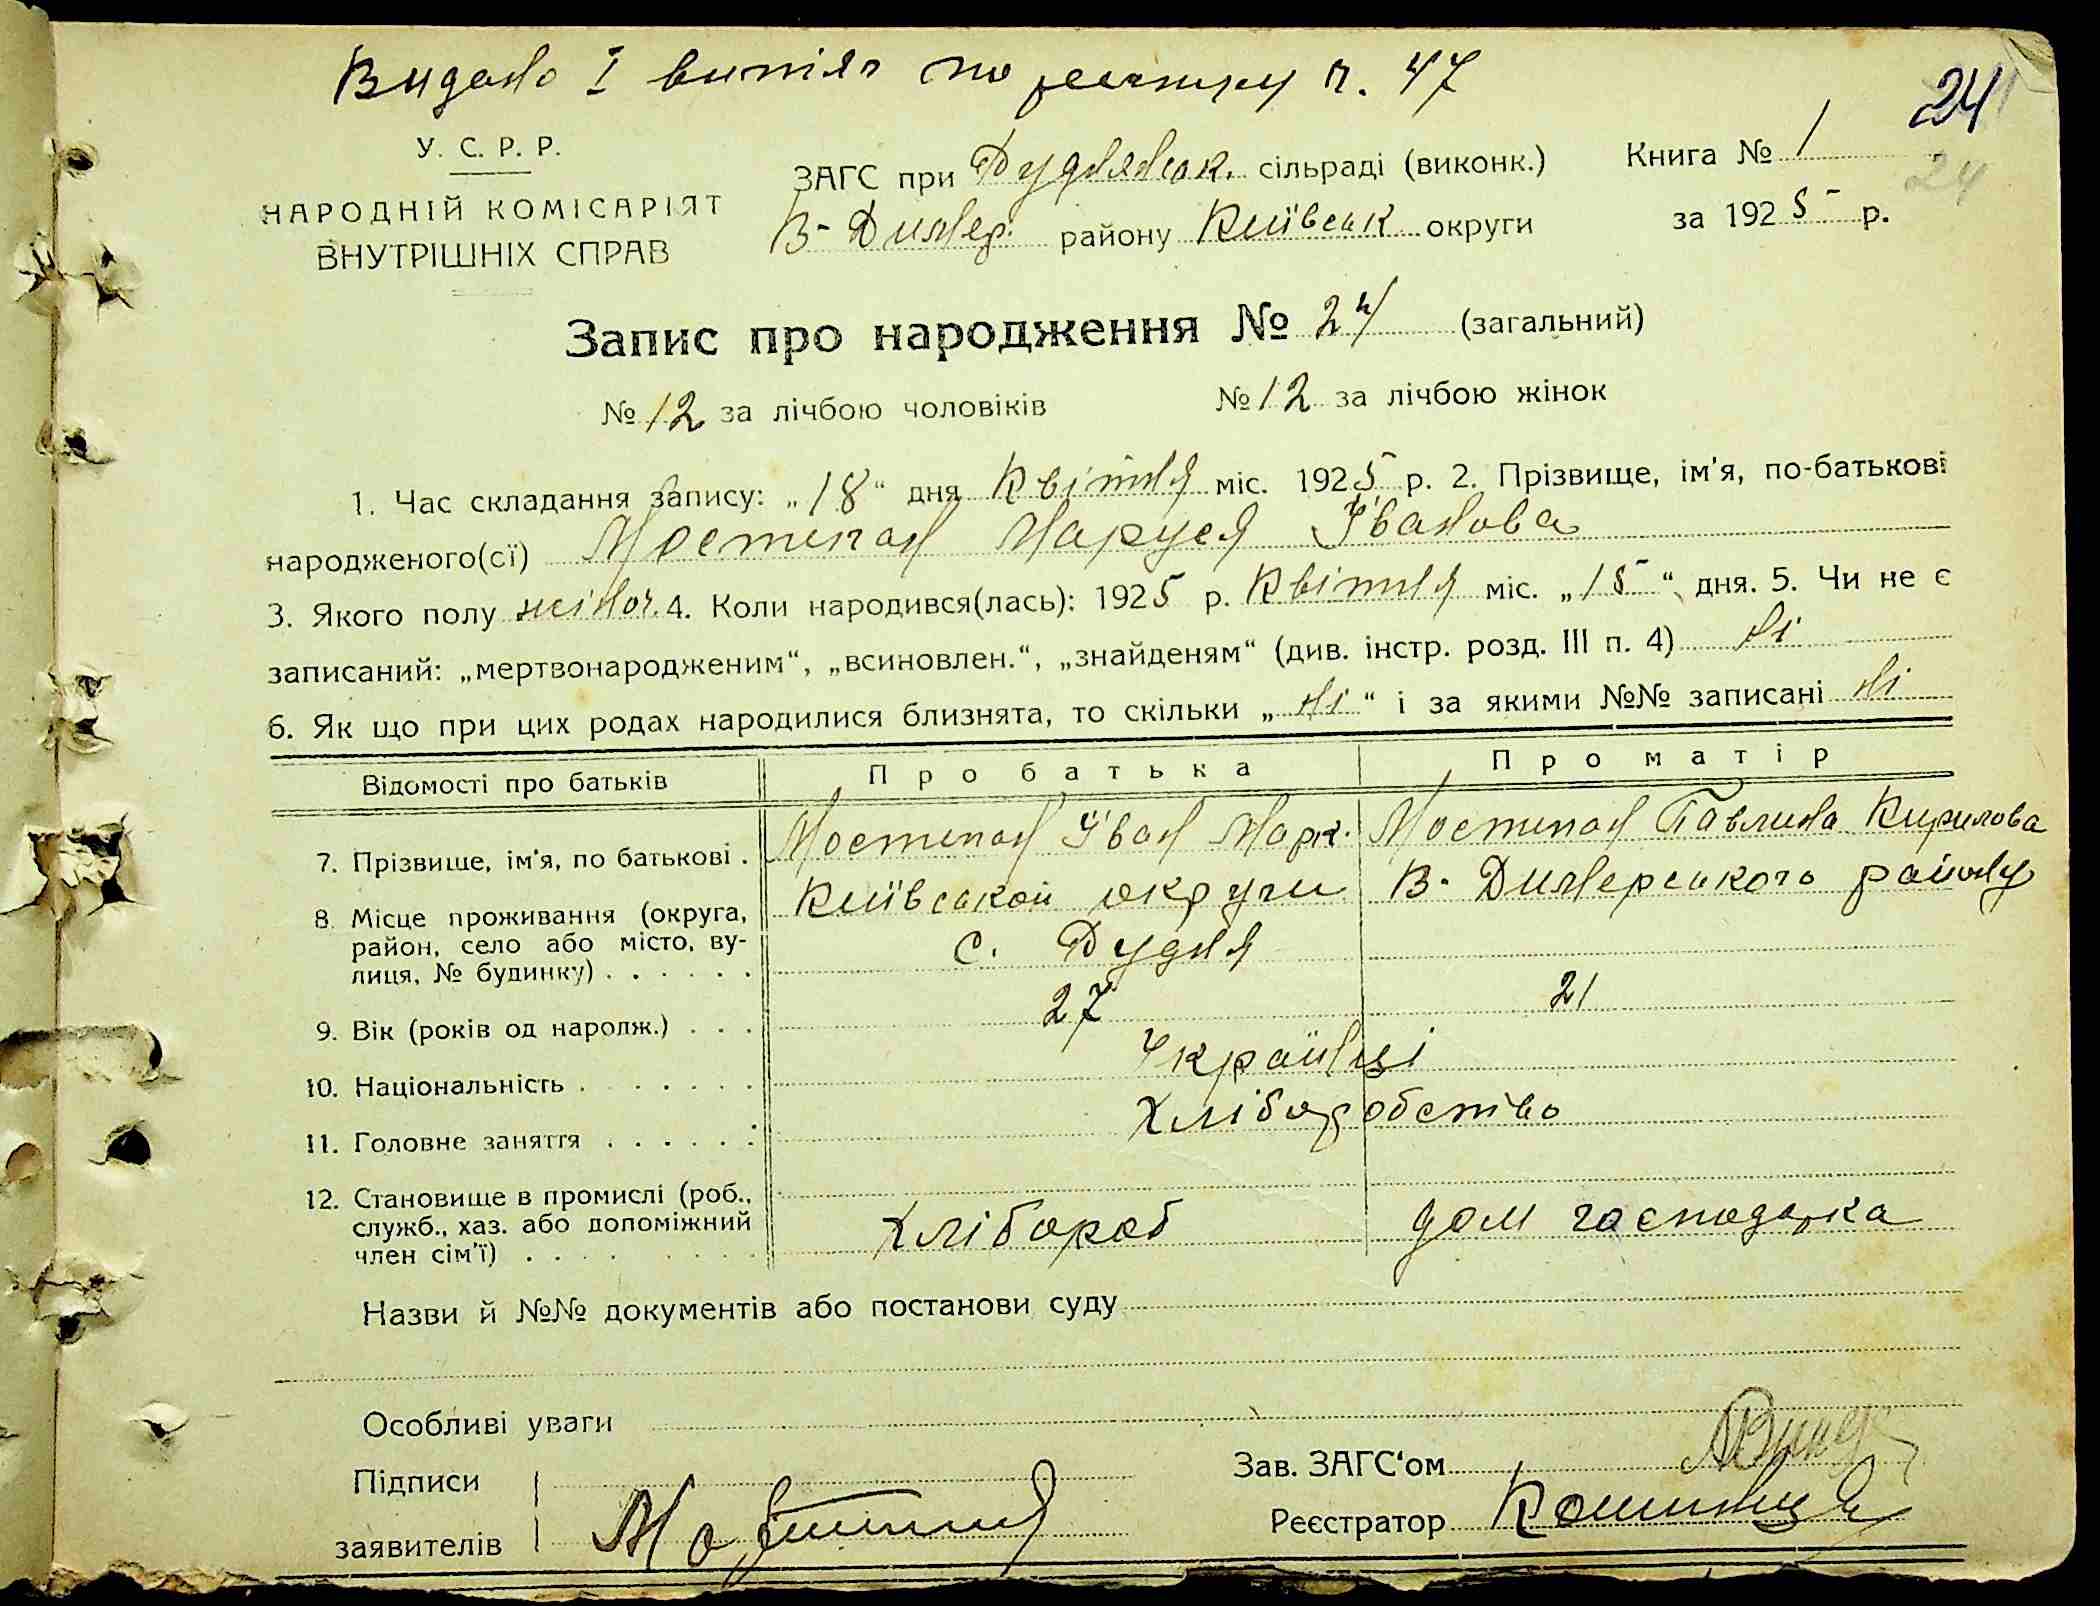 Видано 1 витяг по реєстру п. 47
24
У. С. Р. Р.
НАРОДНІЙ КОМІСАРІЯТ
ВНУТРІШНІХ СПРАВ
ЗАГС при Руднянськ. сільраді (виконк.)
В-Димер. району Київськ округи
Книга № 1
24
за 1925 р.
Запис про народження № 24 (загальний)
№ 12 за лічбою чоловіків № 12 за лічбою жінок
1. Час складання запису: „18“ дня Квітня міс. 1925 р. 2. Прізвище, ім'я, по-батькові
народженого(сї) Мостипан Маруся Іванова
3. Якого полу жіноч. 4. Коли народився(лась): 1925 р. Квітня міс. „15“ дня. 5. Чи не є
записаний: „мертвонародженим“, „всиновлен.“, „знайденям“ (див. інстр. розд. III п. 4) ні
6. Як що при цих родах народилися близнята, то скільки „ні“ і за якими №№ записані ні
Відомості про батьків Про батька Про матір
7. Прізвище, ім'я, по батькові . Мостипан Іван Марк. Мостипан Павлина Кирилова
8. Місце проживання (округа, Київської округи В-Димерського району
район, село або місто, ву- с. Рудня
лиця, № будинку) . . . . . .
9. Вік (років од нарольж.) . . . 27 21
10. Національність . . . . . . . Українці
11. Головне заняття . . . . . . Хліборобство
12. Становище в промислі (роб.,
служб., хаз. або допоміжний Хлібороб дом господарка
член сім'ї) . . . . . . . .
Назви й №№ документів або постанови суду
Особливі уваги
Підписи
заявителів Мостипан
Зав. ЗАГС'ом
Реєстратор